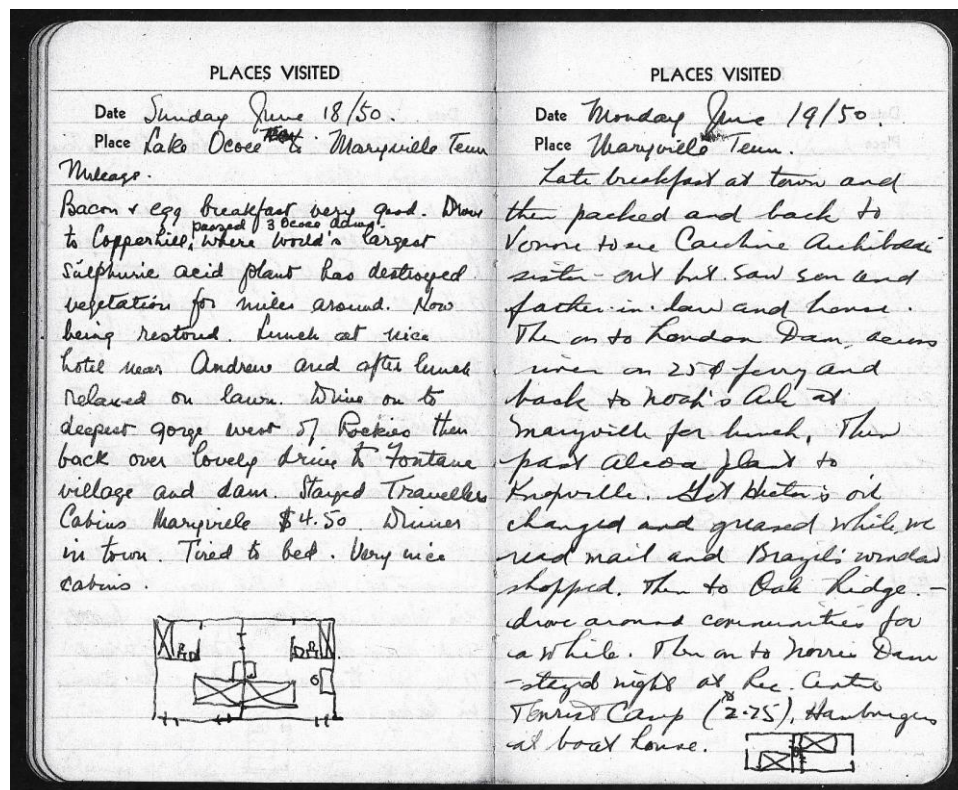 PLACES VISITED
Date Sunday June 18/50.
Place Lake Ococe to Maryville Tenn
Mileage.
Bacon & egg breakfast very good. Drove
passed 3 Ococe dams.
to Copperhill, where World's largest
Sulphuric acid plant has destroyed
vegetation for miles around. Now
being restored. Lunch at nice
hotel near Andrew and after lunch
relaxed on lawn. Drive on to
deepest gorge west of Rockies then
back over lovely drive to Fontana
village and dam. Stayed Travellers
Cabins Maryville $4.50. Dinner
in town. Tired to bed. Very nice
cabins.
PLACES VISITED
Date Monday June 19/50.
Place Maryville Tenn.
Late breakfast at town and
then packed and back to
Vonore to see Caroline Archibald's
sister - out but saw son and
father-in-law and house.
Then on to Loudon Dam, across
river on 25¢ ferry and
back to Noah's Ark at
Maryville for lunch. Then
past Alcoa plant to
Knoxville. Got Hector's oil
changed and greased while we
read mail and Brazil's window
shopped. Then to Oak Ridge -
drove around communities for
a while. Then on to Norris Dam
- stayed night at Rec. Centre
Tourist Camp (2.25), Hamburgers
at boat house.